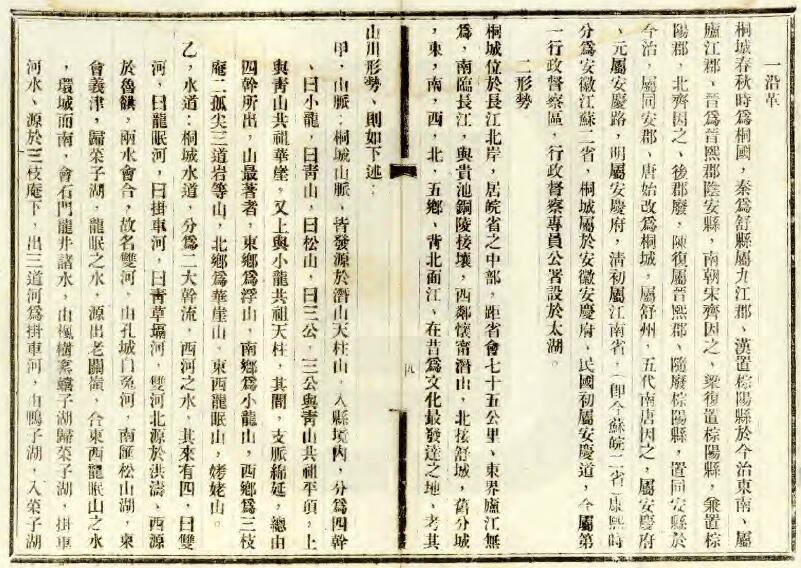 一沿革
桐城春秋時爲桐國，秦爲舒縣屬九江郡、漢置樅陽縣於今治東南、屬
廬江郡、晉爲晉熙郡陰安縣，南朝宋齊因之、梁復置樅陽縣，兼置樅
陽郡，北齊因之、後郡廢，陳復屬晉熙郡、隨廢樅陽縣，置同安縣於
今治，屬同安郡、唐始改爲桐城，屬舒州，五代南唐因之，屬安慶府
、元屬安慶路，明屬安慶府，清初屬江南省，（卽今蘇皖二省）康熙時
分爲安徽江蘇二省，桐城屬於安徽安慶府，民國初屬安慶道，今屬第
一行政督察區，行政督察專員公署設於太湖。
二形勢
桐城位於長江北岸，居皖省之中部，距省會七十五公里、東界廬江無
爲，南臨長江，與貴池銅陵接壤，西鄰懷甯潛山，北接舒城，舊分城
，東，南，西，北，五鄉、背北面江、在昔爲文化最發達之地、考其
山川形勢、則如下述：
甲，山脈：桐城山脈、皆發源於潛山天柱山，入縣境內，分爲四幹
、曰小龍，曰靑山，曰松山，曰三公，三公與靑山共祖平頂，上
與靑山共祖華崖，又上與小龍共祖天柱，其間，支脈綿延，總由
四幹所出，山最著者，東鄉爲浮山，南鄉爲小龍山，西鄉爲三枝
庵二孤尖三道岩等山，北鄉爲華崖山。東西龍眠山，姥姥山。
乙，水道：桐城水道，分爲二大幹流，西河之水，其來有四，曰雙
河，曰龍眠河，曰掛車河，曰靑草塥河，雙河北源於洪濤、西源
於魯鎮，兩水會合，故名雙河，由孔城白兔河，南匯松山湖，東
會義津，歸菜子湖。龍眠之水，源出老關嶺，合東西龍眠山之水
，環城而南，會石門龍井諸水，由楓樹窯蟻子湖歸菜子湖，掛車
河水、源於三枝庵下，出三道河爲掛車河，由鴨子湖，入菜子湖
九